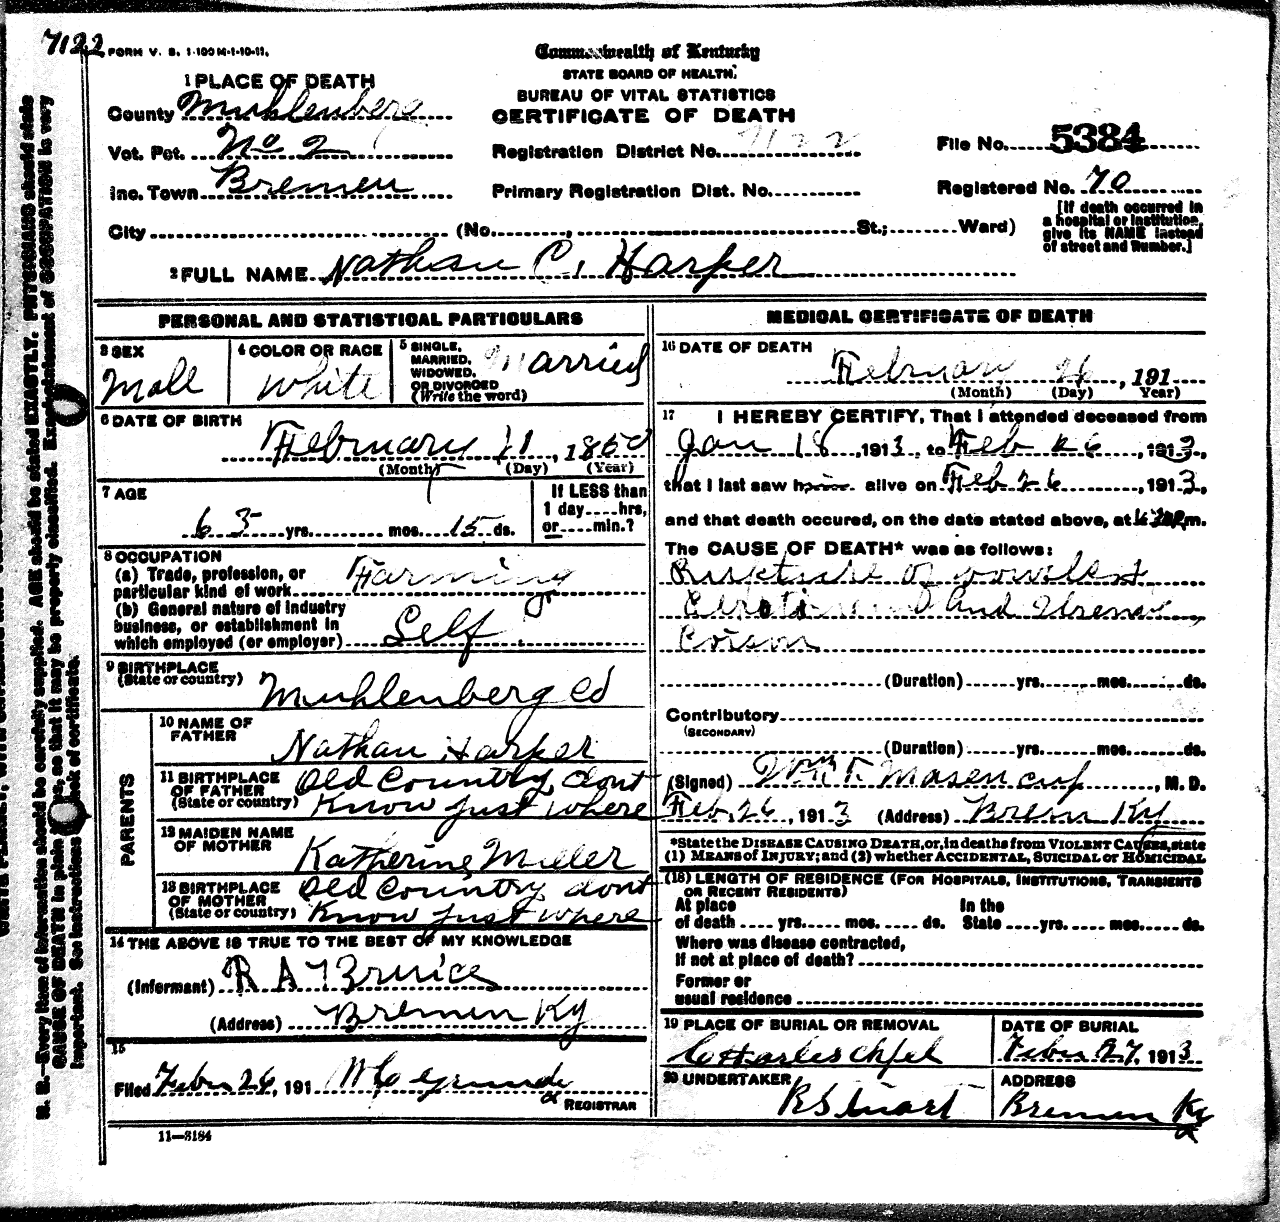 7122 FORM V. S. 1-100 M-1-10-11.
Commonwealth of Kentucky
STATE BOARD OF HEALTH.
BUREAU OF VITAL STATISTICS
CERTIFICATE OF DEATH
1 PLACE OF DEATH
County Muhlenberg
Vot. Pct. No 2
Inc. Town Bremen
City (No. , St.; Ward)
Registration District No. 7122
Primary Registration Dist. No.
File No. 5384
Registered No. 70
[If death occurred in
a hospital or institution,
give its NAME instead
of street and number.]
2 FULL NAME Nathan C. Harper
PERSONAL AND STATISTICAL PARTICULARS
3 SEX
Male
4 COLOR OR RACE
White
5 SINGLE,
MARRIED,
WIDOWED,
OR DIVORCED
(Write the word)
Married
6 DATE OF BIRTH
February 11, 1850
(Month) (Day) (Year)
7 AGE
63 yrs. mos. 15 ds.
If LESS than
1 day hrs,
or min.?
8 OCCUPATION
(a) Trade, profession, or
particular kind of work Farming
(b) General nature of industry
business, or establishment in
which employed (or employer) Self
9 BIRTHPLACE
(State or country)
Muhlenberg Co
PARENTS
10 NAME OF
FATHER
Nathan Harper
11 BIRTHPLACE
OF FATHER
(State or country)
Old Country dont
Know just where
12 MAIDEN NAME
OF MOTHER
Katherine Miller
13 BIRTHPLACE
OF MOTHER
(State or country)
Old Country dont
Know just where
14 THE ABOVE IS TRUE TO THE BEST OF MY KNOWLEDGE
(Informant) R A
(Address) Bremen Ky
15
Filed 26, 191
REGISTRAR
11—3184
MEDICAL CERTIFICATE OF DEATH
16 DATE OF DEATH
26, 191
(Month) (Day) Year)
17 I HEREBY CERTIFY, That I attended deceased from
Jan 18, 1913, to Feb 26, 1913,
that I last saw him alive on Feb 26, 1913,
and that death occured, on the date stated above, at m.
The CAUSE OF DEATH* was as follows:
of
and
(Duration) yrs. mos. ds.
Contributory
(SECONDARY)
(Duration) yrs. mos. ds.
(Signed) Wm T. Masencup, M. D.
Feb. 26, 1913 (Address) Ky
*State the DISEASE CAUSING DEATH, or, in deaths from VIOLENT CAUSES, state
(1) MEANS OF INJURY; and (2) whether ACCIDENTAL, SUICIDAL or HOMICIDAL
(18) LENGTH OF RESIDENCE (FOR HOSPITALS, INSTITUTIONS, TRANSIENTS
OR RECENT RESIDENTS)
At place
of death yrs. mos. ds.
In the
State yrs. mos. ds.
Where was disease contracted,
if not at place of death?
Former or
usual residence
19 PLACE OF BURIAL OR REMOVAL
DATE OF BURIAL
27, 1913
20 UNDERTAKER
ADDRESS
Bremen Ky
N. B.—Every item of information should be carefully supplied. AGE should be stated EXACTLY. PHYSICIANS should state
CAUSE OF DEATH in plain so that it may be properly classified. Exact statement of OCCUPATION is very
important. See instructions back of certificate.